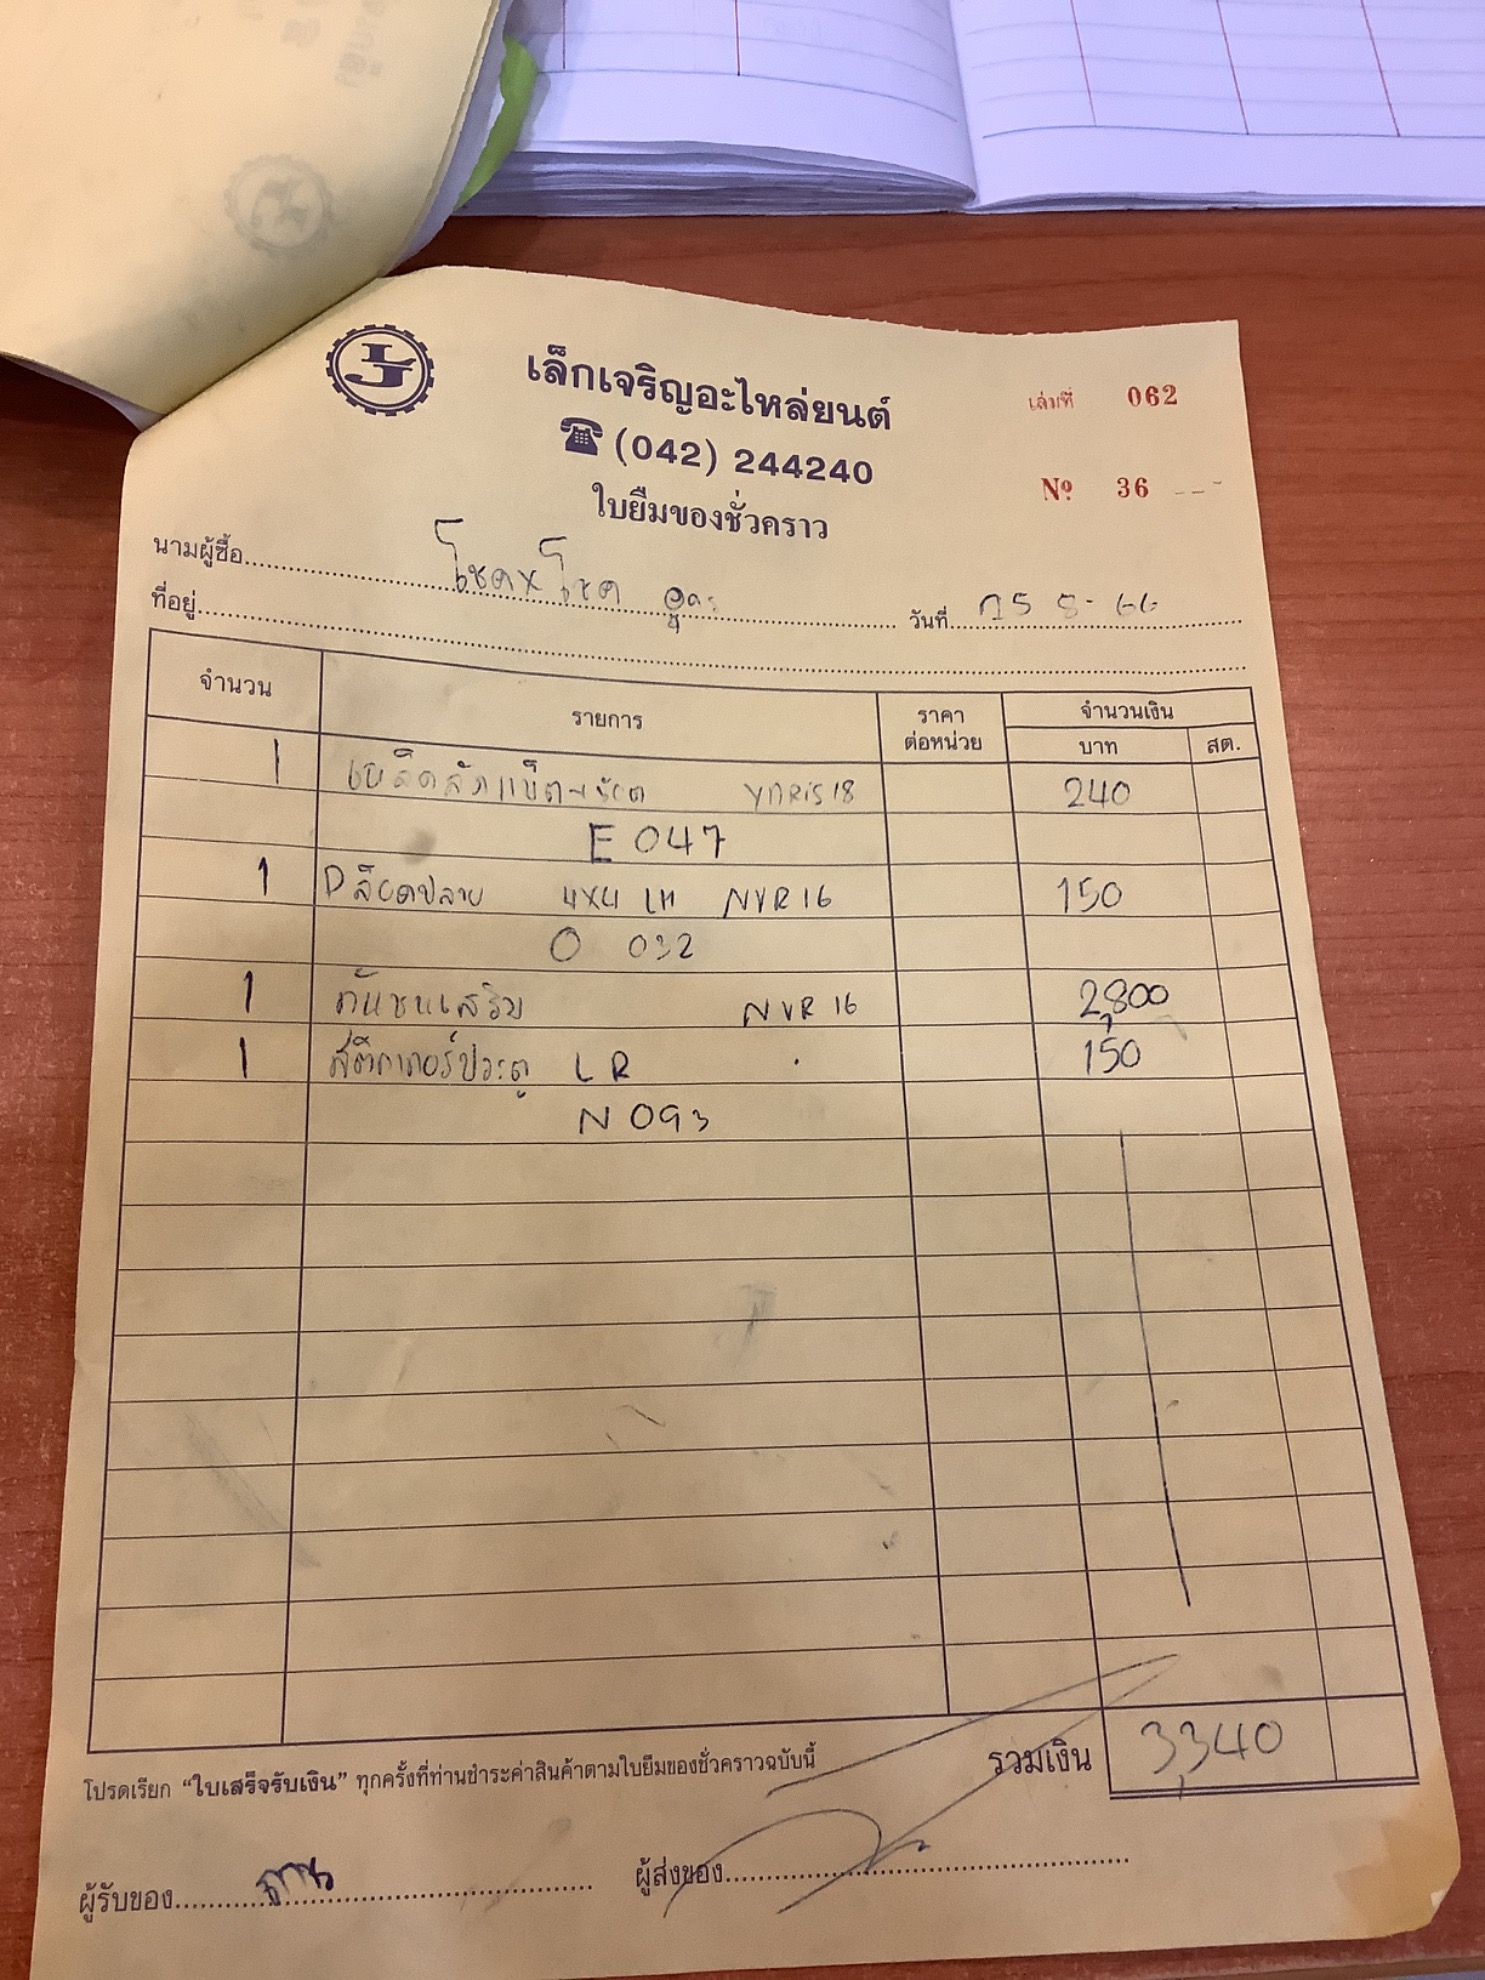 เล็กเจริญอะไหล่ยนต์
เล่มที่ 062
(042) 244240
Nº 36
ใบยืมของชั่วคราว
นามผู้ซื้อ โชค x โชค อุดร
ที่อยู่ วันที่ 25 8-66
จำนวน รายการ ราคาต่อหน่วย จำนวนเงิน
บาท สต.
1 YARIS 18 240
E 047
1 4x4 LH NVR 16 150
O 032
1 กันชนเสริม NVR 16 2,800
1 สติกเกอร์ประตู L R 150
N 093
รวมเงิน 3,340
โปรดเรียก “ใบเสร็จรับเงิน” ทุกครั้งที่ท่านชำระค่าสินค้าตามใบยืมของชั่วคราวฉบับนี้
ผู้รับของ ผู้ส่งของ